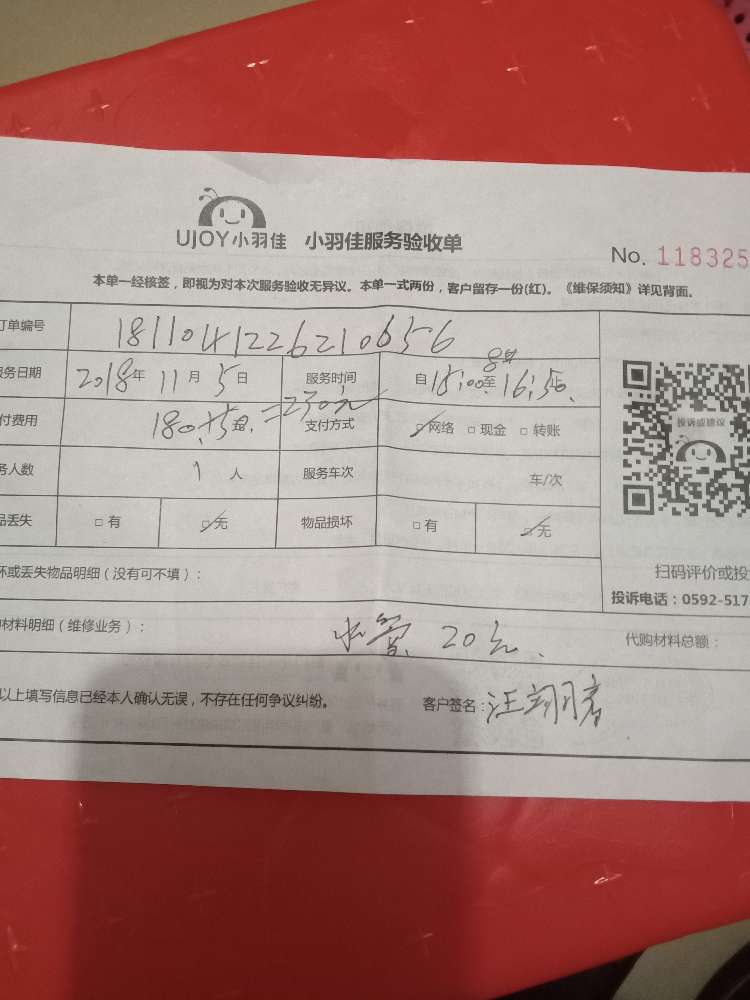 UJOY小羽佳 小羽佳服务验收单
No. 118325
本单一经核签，即视为对本次服务验收无异议。本单一式两份，客户留存一份(红)。《维保须知》详见背面。
订单编号 181104122621065-6
服务日期 2018年 11月 5日 服务时间 自15:00至16:50
付费用 180+50=230元 支付方式 ☑网络 □现金 □转账
务人数 1人 服务车次 车/次
品丢失 □有 ☑无 物品损坏 □有 ☑无
投诉或建议
坏或丢失物品明细（没有可不填）：
扫码评价或投
投诉电话：0592-517
购材料明细（维修业务）： 水管 20元 代购材料总额：
以上填写信息已经本人确认无误，不存在任何争议纠纷。 客户签名：汪翔